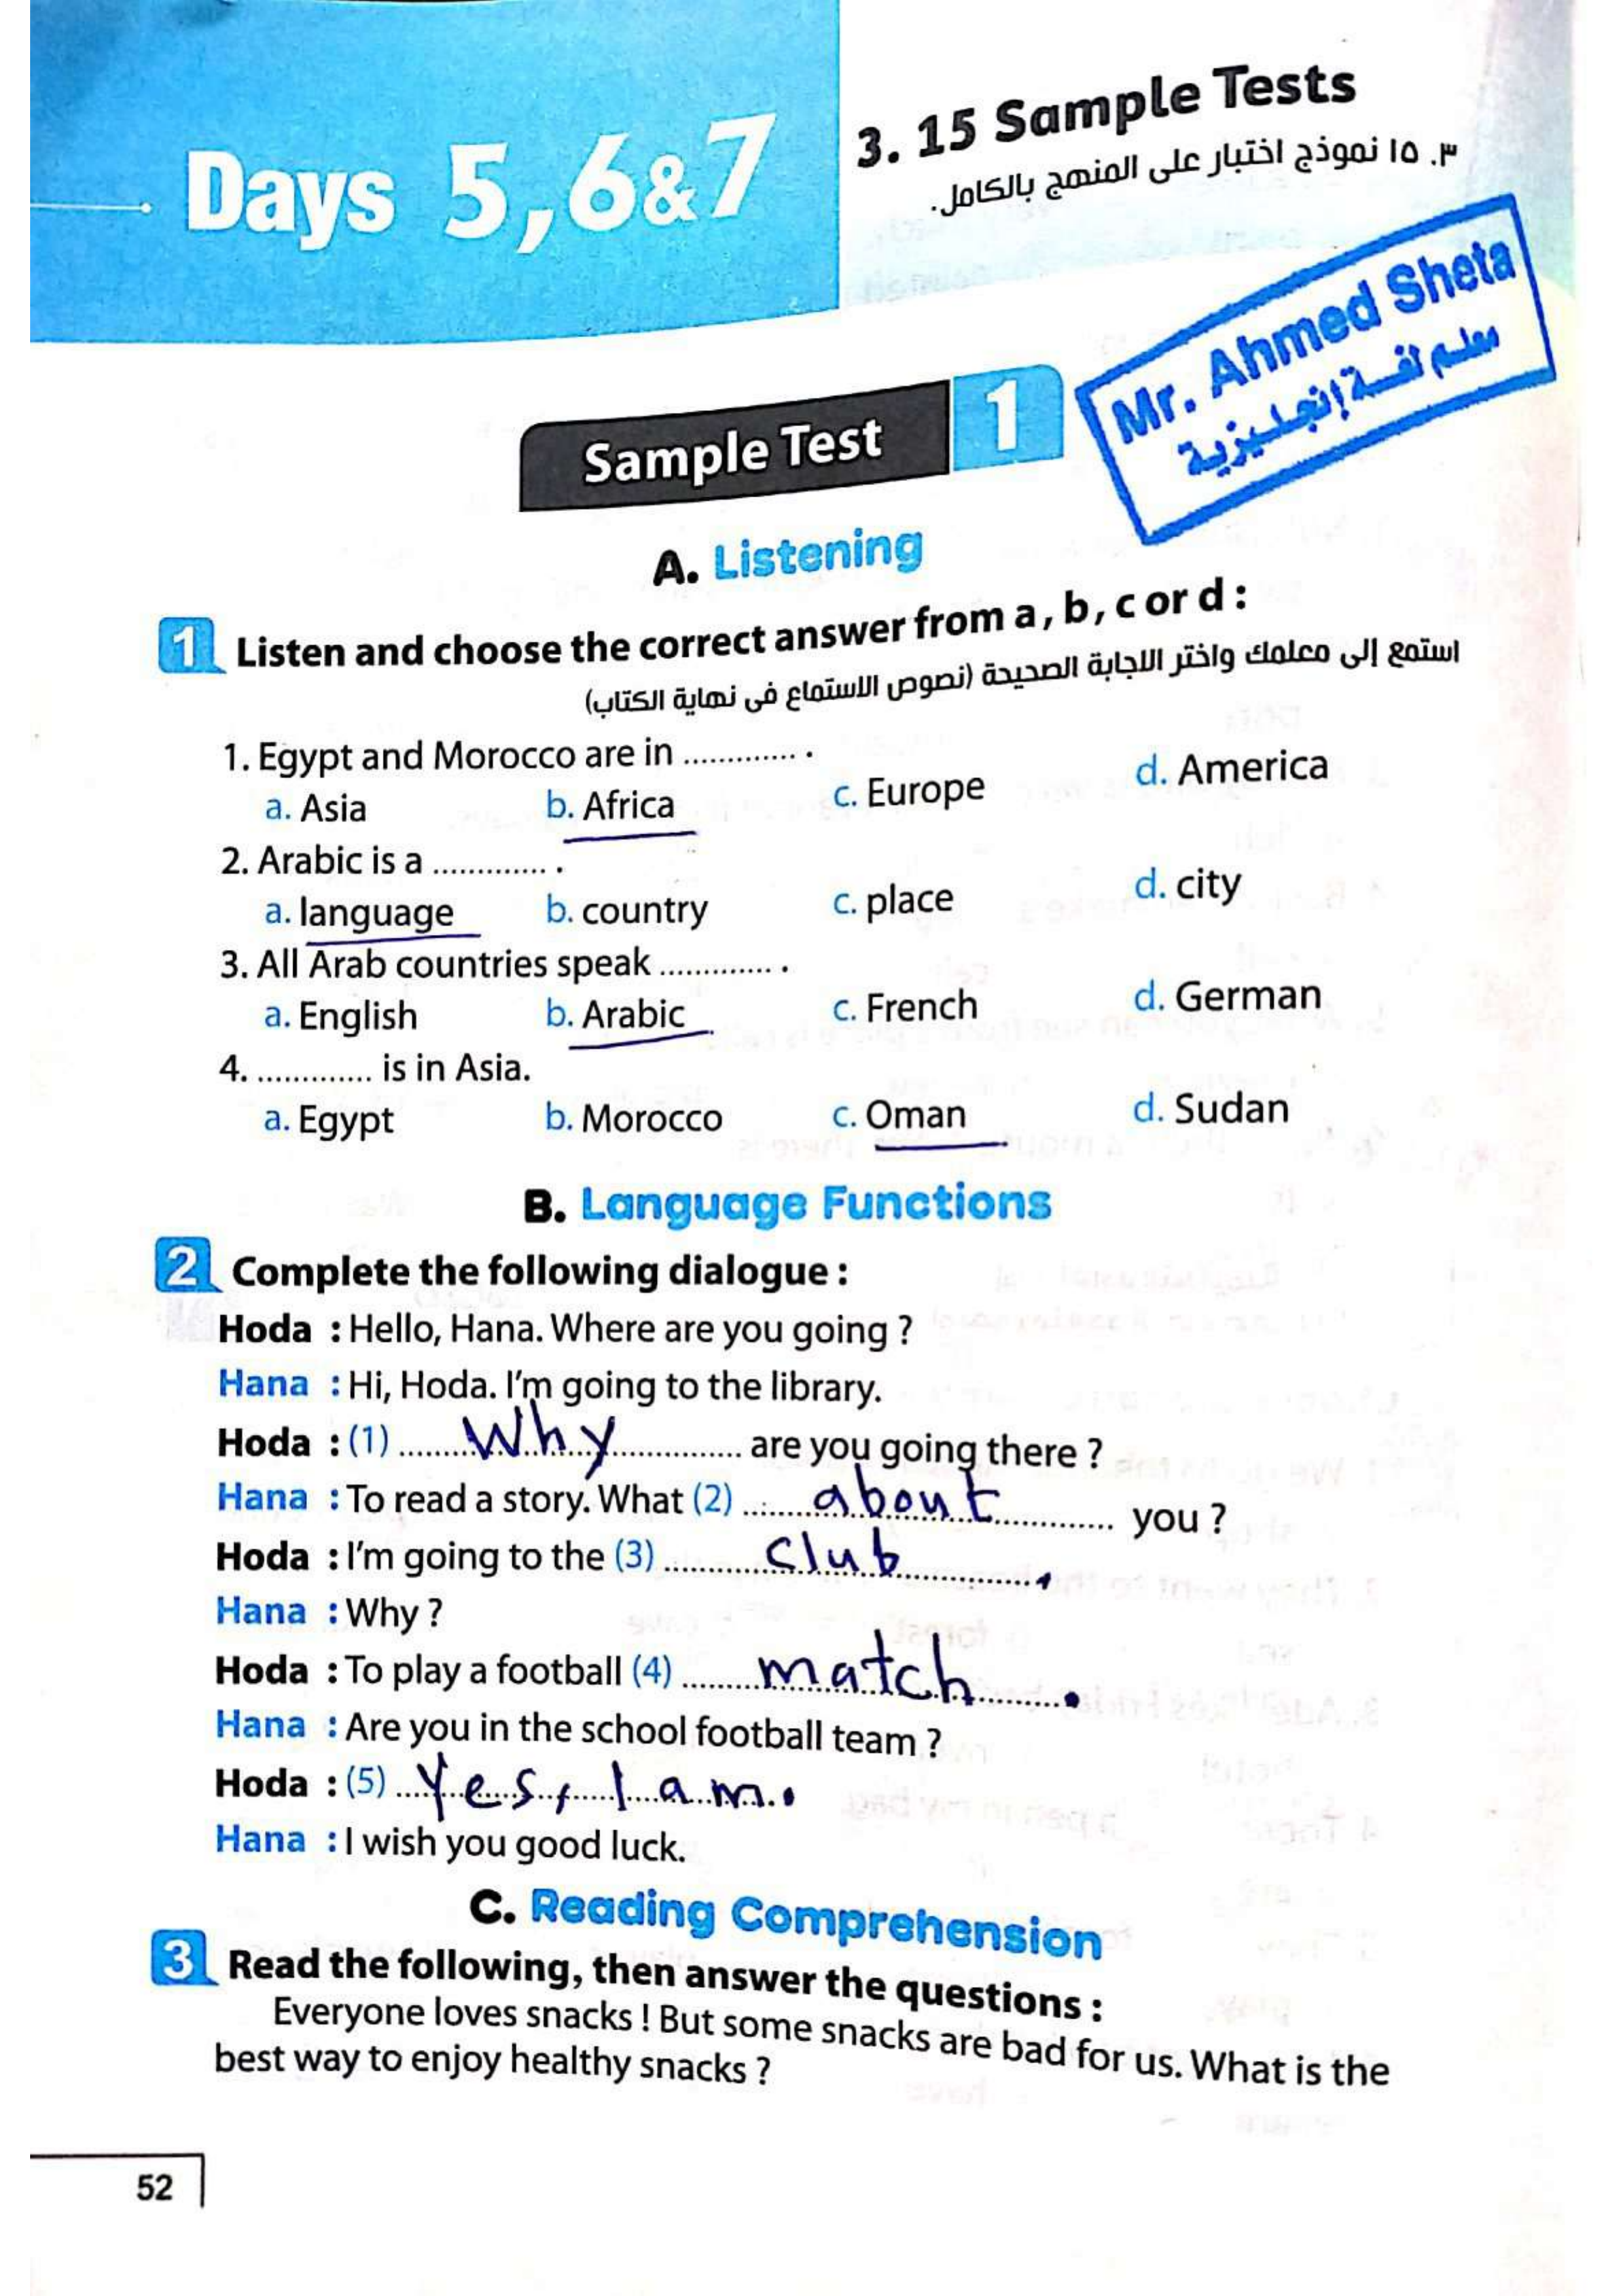 Days 5,6&7
3. 15 Sample Tests
٣. ١٥ نموذج اختبار على المنهج بالكامل.
Mr. Ahmed Sheta
معلم لغة إنجليزية
Sample Test 1
A. Listening
1 Listen and choose the correct answer from a, b, c or d :
استمع إلى معلمك واختر الاجابة الصحيحة (نصوص الاستماع فى نهاية الكتاب)
1. Egypt and Morocco are in ............. .
a. Asia b. Africa c. Europe d. America
2. Arabic is a ............. .
a. language b. country c. place d. city
3. All Arab countries speak ............. .
a. English b. Arabic c. French d. German
4. ............. is in Asia.
a. Egypt b. Morocco c. Oman d. Sudan
B. Language Functions
2 Complete the following dialogue :
Hoda : Hello, Hana. Where are you going ?
Hana : Hi, Hoda. I'm going to the library.
Hoda : (1) Why are you going there ?
Hana : To read a story. What (2) about you ?
Hoda : I'm going to the (3) club.
Hana : Why ?
Hoda : To play a football (4) match.
Hana : Are you in the school football team ?
Hoda : (5) Yes, I am.
Hana : I wish you good luck.
C. Reading Comprehension
3 Read the following, then answer the questions :
Everyone loves snacks ! But some snacks are bad for us. What is the
best way to enjoy healthy snacks ?
52